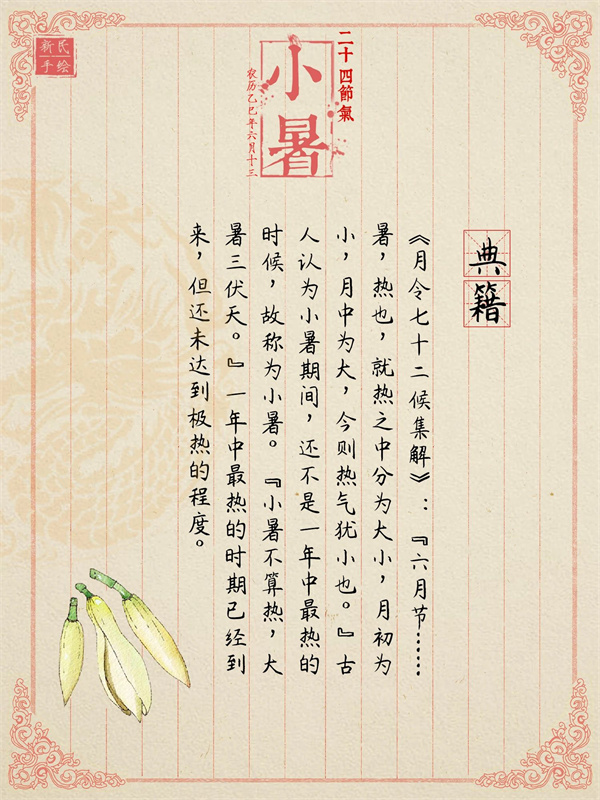 新民
手绘
二十四節氣
小暑
农历乙巳年六月十三
典籍
《月令七十二候集解》：『六月节……
暑，热也，就热之中分为大小，月初为
小，月中为大，今则热气犹小也。』古
人认为小暑期间，还不是一年中最热的
时候，故称为小暑。『小暑不算热，大
暑三伏天。』一年中最热的时期已经到
来，但还未达到极热的程度。